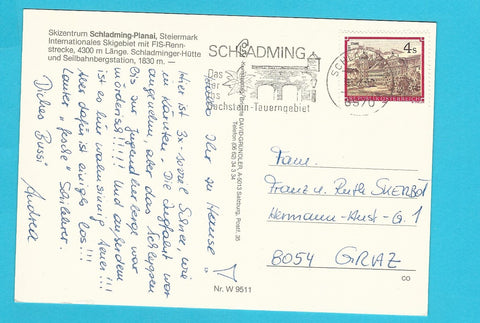 Skizentrum Schladming-Planai, Steiermark
Internationales Skigebiet mit FIS-Renn-
strecke, 4300 m Skigarage. Schladminger-Hütte
und Seilbahnbergstation, 1830 m. —
SCHLADMING
Das
Dachstein-Tauerngebiet
8970
4 S
REPUBLIK ÖSTERREICH
DAVID GRÜNDLER, A-5013 Salzburg, Postf. 35
Telefon (06 62) 34 3 34
Nr. W 9511
CO
Ihr zu Hause
Hier ist 3x soviel Schnee, wie
in Kärnten. Die Zugfahrt war
angenehm, aber das Schleppen
bis zur Jugendherberge war
mörderisch!!!! Und außerdem
ist es hier wahnsinnig teuer!!!
Aber dafür ist einiges los!!!
Lauter "fade" Schilehrer.
Dickes Bussi
Andrea
Fam.
Franz u. Ruth
Hermann-
8054 GRAZ